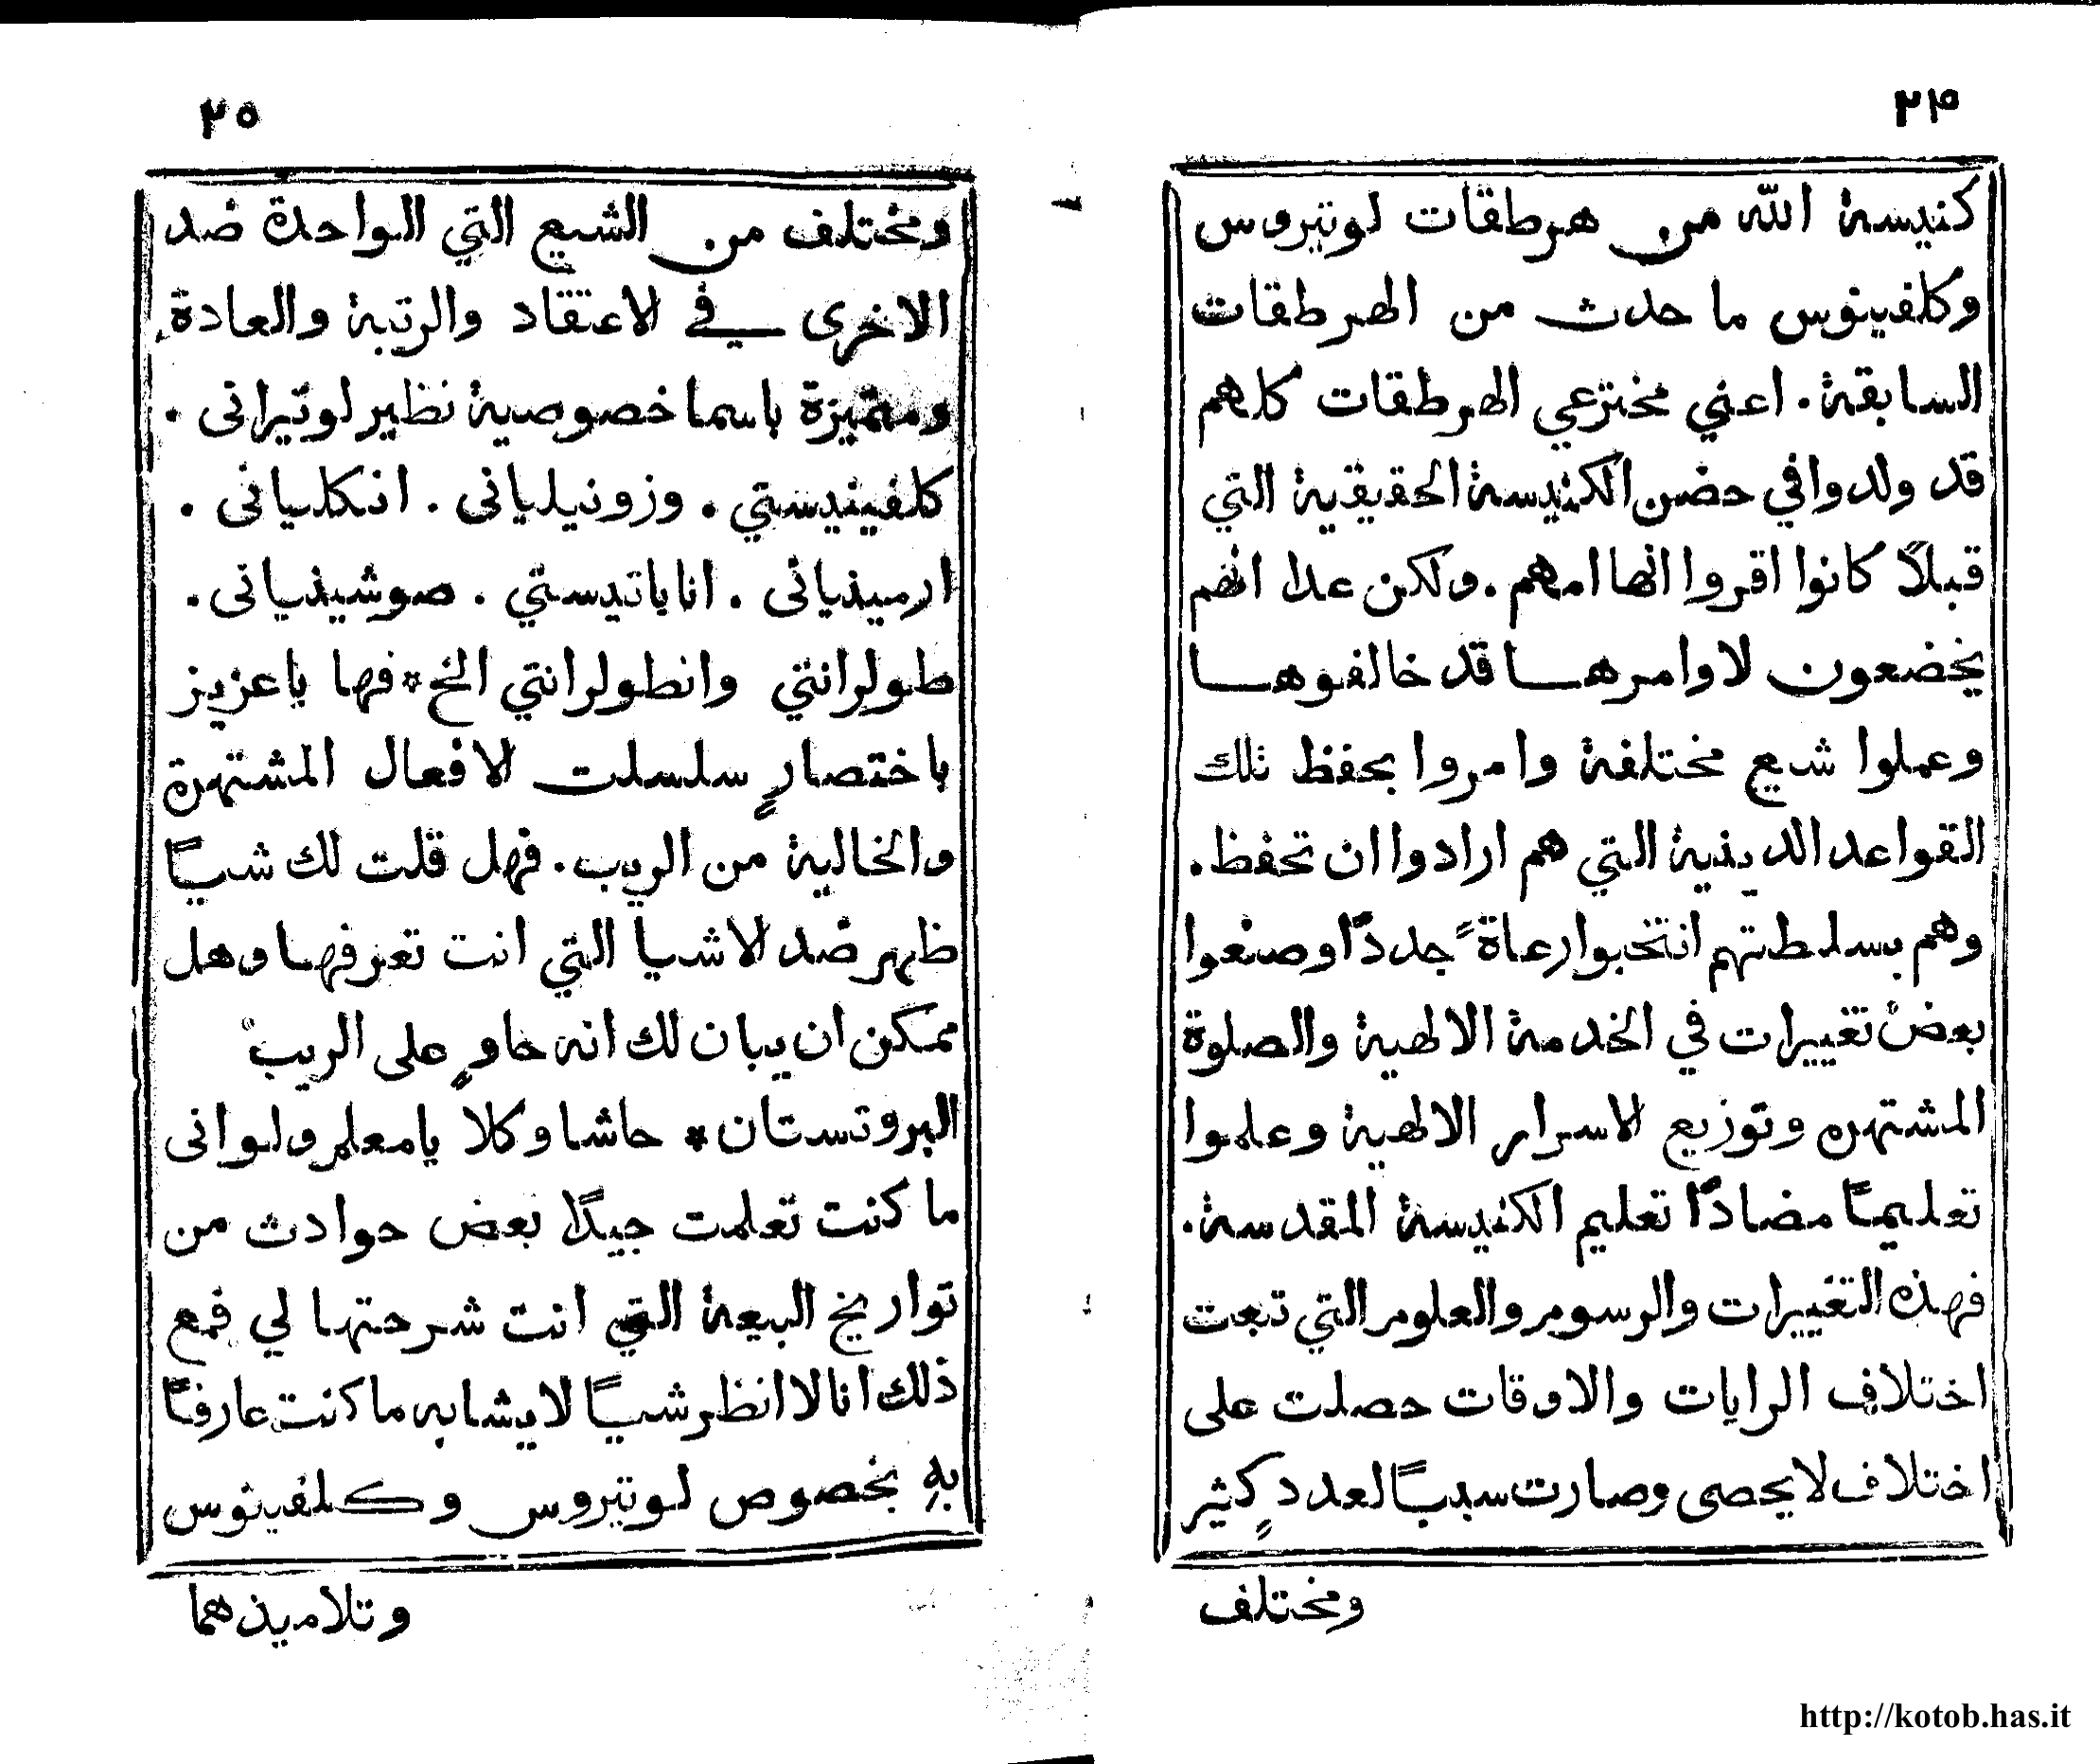 ٢٤
كنيسة الله من هرطقات لوتيروس
وكلفينوس ما حدث من الهرطقات
السابقة. اعني مخترعي الهرطقات كلهم
قد ولدوا في حضن الكنيسة الحقيقية التي
قبلاً كانوا اقروا انها امهم. ولكن عدا انهم
يخضعون لاوامرها قد خالفوها
وعملوا شيع مختلفة وامروا بحفظ تلك
القواعد الدينية التي هم ارادوا ان تحفظ.
وهم بسلطتهم انتخبوا رعاةً جددًا وصنعوا
بعض تغييرات في الخدمة الالهية والصلوة
المشتهره وتوزيع الاسرار الالهية وعلموا
تعليمًا مضادًا تعليم الكنيسة المقدسة.
فهذه التغييرات والرسوم والعلوم التي تبعت
اختلاف الرايات والاوقات حصلت على
اختلاف لا يحصى وصارت سببًا لعددٍ كثير
ومختلف
٢٥
ومختلف من الشيع التي الواحدة ضد
الاخرى في الاعتقاد والرتبة والعادة
ومتميزة باسما خصوصية نظير لوتيراني.
كلفينيستي. وزونيلياني. انكلياني.
ارمينياني. اناباتيستي. صوشينياني.
طولرانتي وانطولرانتي الخ * فها يا عزيز
باختصارٍ سلسلت الافعال المشتهرة
والخالية من الريب. فهل قلت لك شيًا
ظهر ضد الاشيا التي انت تعرفها وهل
ممكن ان يبان لك انه حاوٍ على الريب
البروتستان * حاشا وكلا يا معلم ولو اني
ما كنت تعلمت جيدًا بعض حوادث من
تواريخ البيعة التي انت شرحتها لي فمع
ذلك انا لا انظر شيًا لا يشابه ما كنت عارفًا
بهِ بخصوص لوتيروس وكلفينوس
وتلاميذهما
http://kotob.has.it